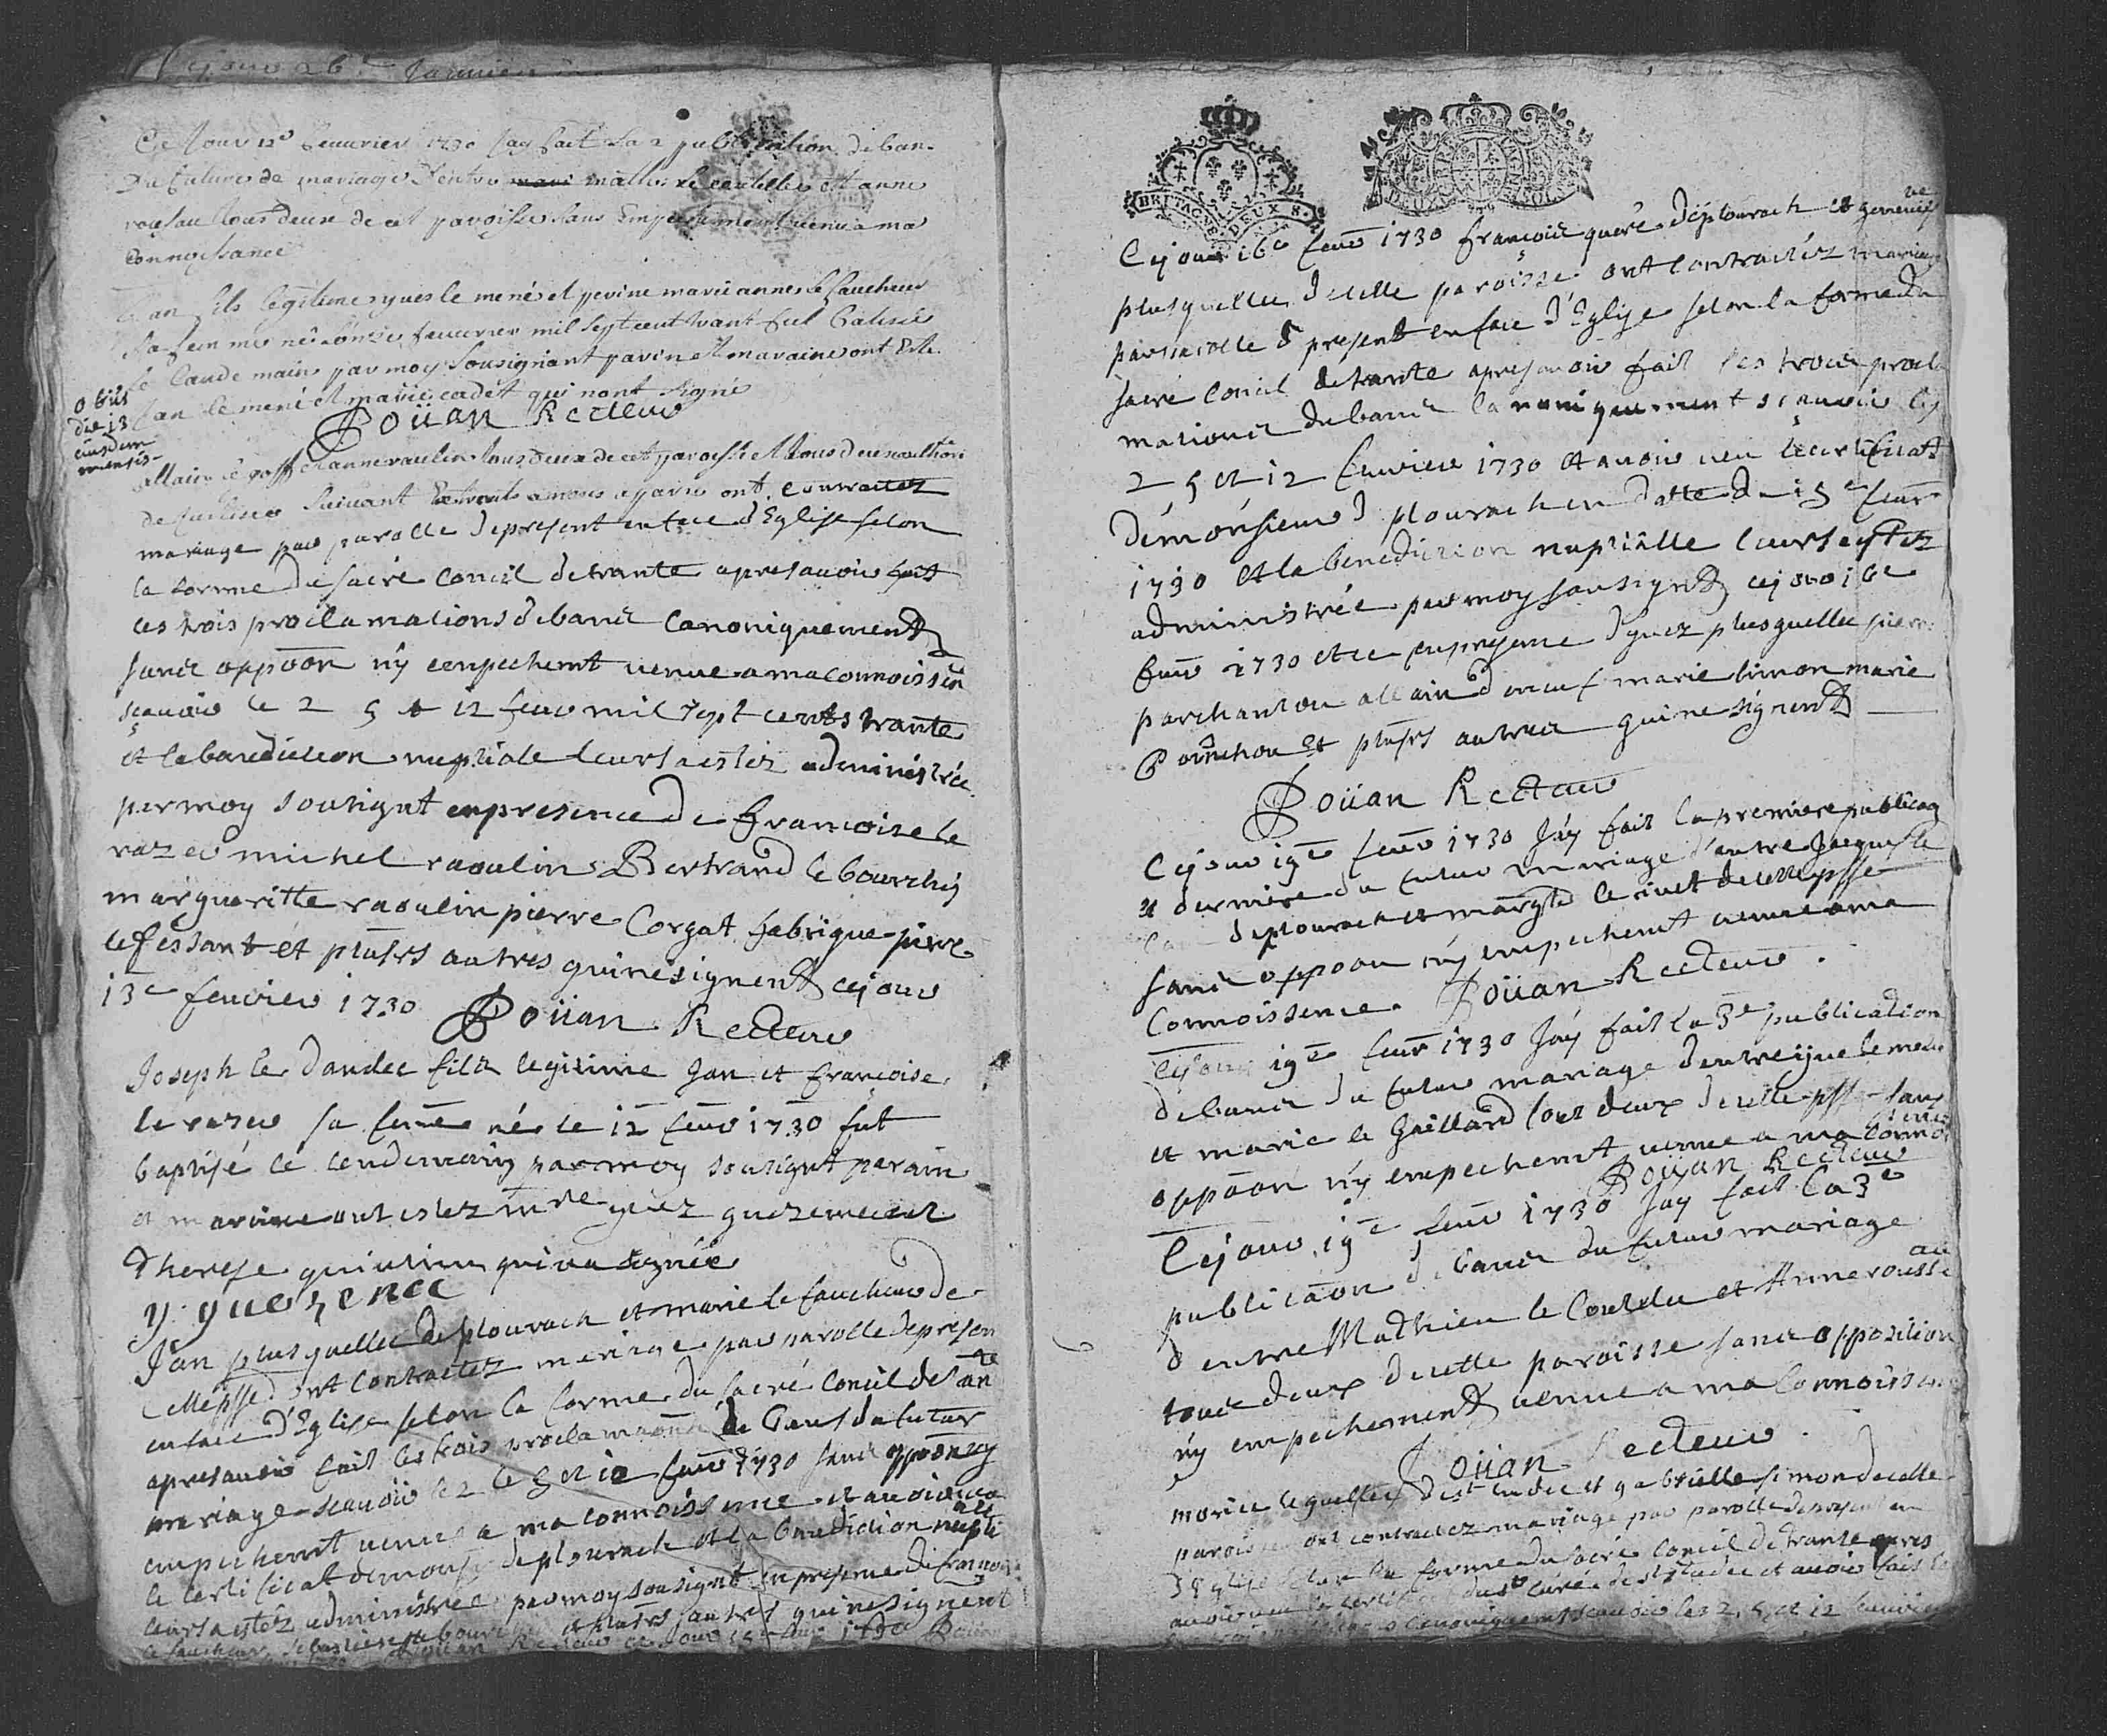 Ce Jour 12e feuurier 1730 Jay fait la 2 publication de ban
Du future de mariage Dentre mathieu le coutellec et anne
rousau tous deux de cet paroisse sans Empechement venu a ma
Connoissance
Jan fils legitime yues le mené et marie anne le faucheur
sa femme né lonzie feuurier mil sept cent trant fut Batisée
le Lande main par moy Sousignant parin et maraine ont Esté
Jan le mené et marie cadet qui nont signé
obiit
die 13
eiusdem
mensis
Doüan Recteur
allain le goff et anne raulin tous deux de cet paroesse
de suiuant ont contractez
mariage par parolle de present en face d'Eglise selon
la forme du sacré concil de trante apres auoir fait
les trois proclamations de banie Canoniquement
sans oppoon n'y empechemt venue a ma connoissan
scauoir le 2 5 et 12 feur mil sept cents trante
et la benediction nuptiale leurs a estez administrée
par moy sousignt en presence de francoise le
razer michel raoulin Bertrand le bourchis
margueritte raoulin pierre Corgat fabrique pierre
le fessant et plusrs autres qui ne signent ce jour
13e feuvrier 1730 Doüan Recteur
Joseph le Dandec fils legitime Jan et françoise
le razer sa feme né le 12 feur 1730 fut
baptisé le lendemain par moy sousignt parain
et maraine ont estez mre yuez guezenecec
Therese quintin qui na signée
y. guezenec
Jan plusquellec de plourach et marie le faucheur de
cette psse ont Contractez mariage par parolle de presen
en face d'Eglise selon la forme du sacré Concil de tran te
apres auoir fait les trois proclamaons de bans du futur
mariage scauoir le 2 le 5 et 12 feur 1730 sans oppoon ny
empechemt venue a ma connoissence et auoir veu
le certificat de monsr de plourach et la benediction nupti ale
leurs a estéz administrée par moy sousignt en presence de francois
le faucheur, et plusrs autres qui ne signent
Doüan Recteur 1730
Ce jour 16e feur 1730 francois queré de plourach et geneviefve
plusquellec de cette paroisse ont contractéz mariage
par parolle de present en face d'Eglise selon la forme du
sacré Concil de trante apres auoir fait les trois procla
mations de banie canoniquement scauoir les
2 5 et 12 feuvrier 1730 et auoir veu le certificat
de monsieur de plourach en datte du 15e feur
1730 et la benediction nuptialle leurs a estez
administrée par moy sousignt ce jour 16e
feur 1730 et ce en presence d'yuez plusquellec pierre
parchantou allain marie simon marie
et plusrs autres qui ne signent
Doüan Recteur
Ce jour 19e feur 1730 J'ay fait la premiere publicaon
et derniere du futur mariage d'entre Jacques le
de plourach et margte le rivet de cette psse
sans oppoon n'y empechemt venue a ma
Connoissence. Doüan Recteur.
Ce jour 19e feur 1730 J'ay fait la 3e publication
de banie du futur mariage d'entre yue le mené
et marie le Gaillard tous deux de cette psse sans
oppoon n'y empechemt venue a ma conno issence
Doüan Recteur
Ce jour 19e feur 1730 Jay fait la 3e
publicaon de banie du futur mariage
d'entre Mathieu le Coutellec et Anne rousse au
tous deux de cette paroisse sans opposition
n'y empechement venue a ma Connoissan
Doüan Recteur.
morice le guellec de st tudec et gabrielle simon de cette
paroisse ont contractez mariage par parolle de present en
d'Eglise selon la forme du sacré Concil de trante apres
auoir veu le certificat du sr curé de st tudec et auoir fait
canoniquement scauoir les 2, 5, et 12 feuvrier